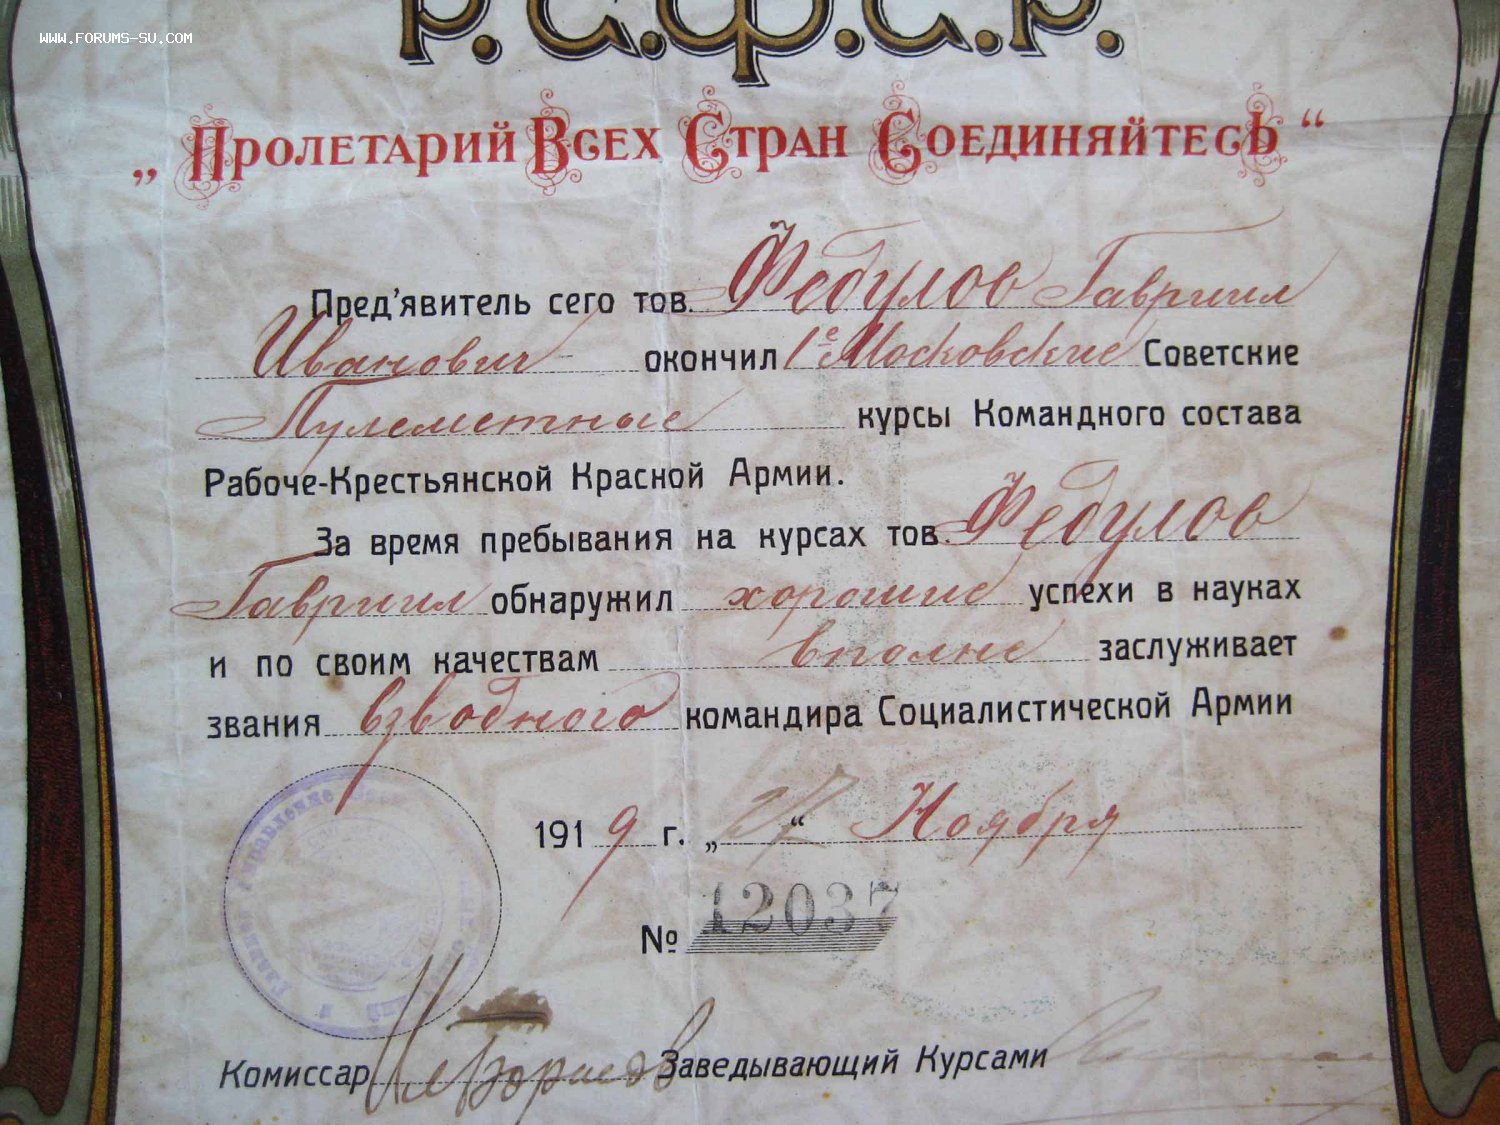 WWW.FORUMS-SU.COM
Р.С.Ф.С.Р.
„Пролетарий Всех Стран Соединяйтесь“
Пред'явитель сего тов. Федулов Гавриил
Иванович окончил 1е Московские Советские
Пулеметные курсы Командного состава
Рабоче-Крестьянской Красной Армии.
За время пребывания на курсах тов. Федулов
Гавриил обнаружил хорошие успехи в науках
и по своим качествам вполне заслуживает
звания взводного командира Социалистической Армии
1919 г. „27“ Ноября
№ 12037
Комиссар Заведывающий Курсами